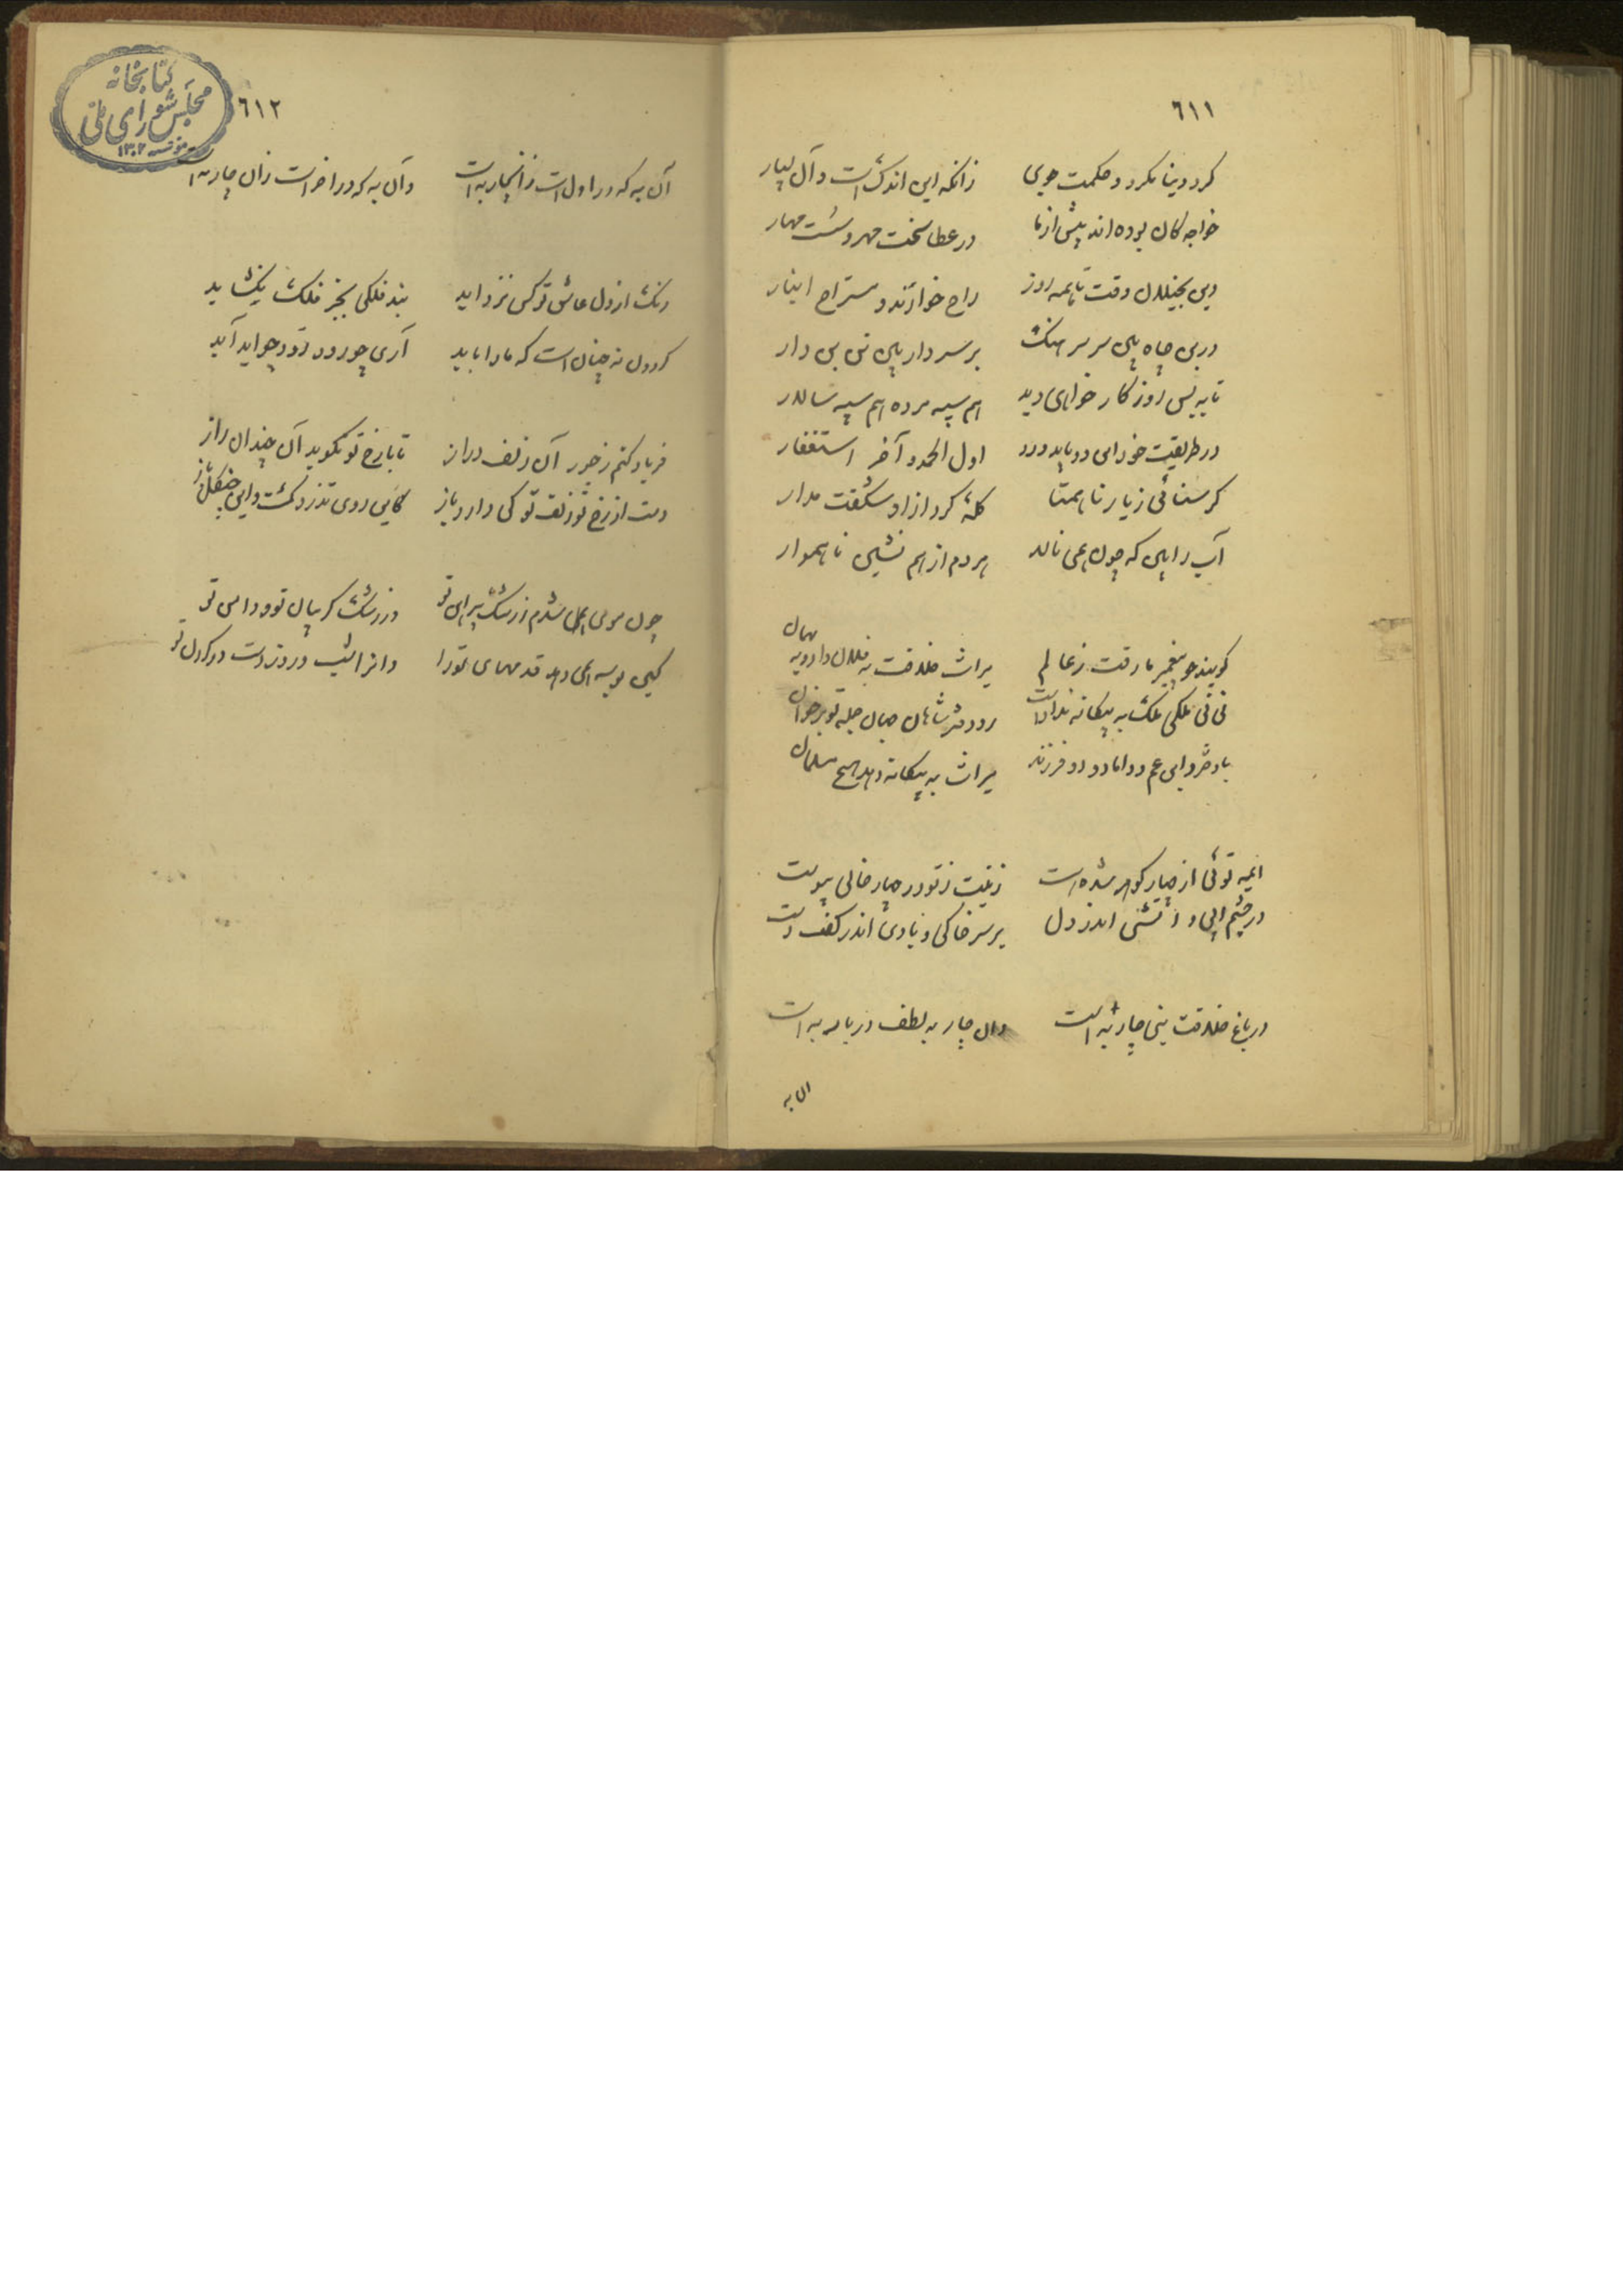 ٦١١
گرد دینا مگرد و حکمت جوی زانکه این اندک است و آن بسیار
خواجه کان بوده اند پیش از ما در عطا سخت مهر و سست مهار
وین بخیلان وقت ما همه روز راح خوارند و مستراح انبار
در بن چاه بین سر سرهنگ بر سر دار بین تن بی دار
تا به بس روزگار خواهی دید هم سپه مرده هم سپه سالار
در طریقت خود این دو باید ورد اول الحمد و آخر استغفار
گر سنائی ز یار ناهمتا گلهٔ کرد از او شگفت مدار
آب را بین که چون همی نالد هر دم از هم نشین ناهموار
گویند چو پیغمبر ما رفت ز عالم میراث خلافت به فلان داد و بهمان
نی نی ملکی ملک به بیگانه نداد است رو دفتر شاهان جهان جمله تو برخوان
با دختر و ابن عم و داماد و دو فرزند میراث به بیگانه دهد هیچ مسلمان
ایمه توئی از چار گوهر شده است زینت ز تو در چار خالی پیوست
در چشم آبی و آتشی اندر دل بر سر خاکی و بادی اندر کف دست
در باغ خلافت بنی چار به است وان چار به لطف در بار به است
آن به
٦١٢
کتابخانه
مجلس شورای ملی
مؤسسه ۱۳۰۲
آن به که در اول است زانچار به است وآن به که در آخر است زان چار به است
رنگ از دل عاشق تو کس نزداید بند فلکی بجز فلک نگشاید
گردون نه چنان است که ما را باید آری چو رود زود چو آید آید
فریاد کنم ز جور آن زلف دراز تا با رخ تو نگوید آن چندان راز
دست از رخ تو زلف تو کی دارد باز کاین روی تذرو گشت و این چنگل باز
چون موی همی شدم ز رشک پیراهن تو وز رشک گریبان تو و دامن تو
کین بوسه همی دهد قدمهای تو را وانرا شب و روز دست در گردن تو